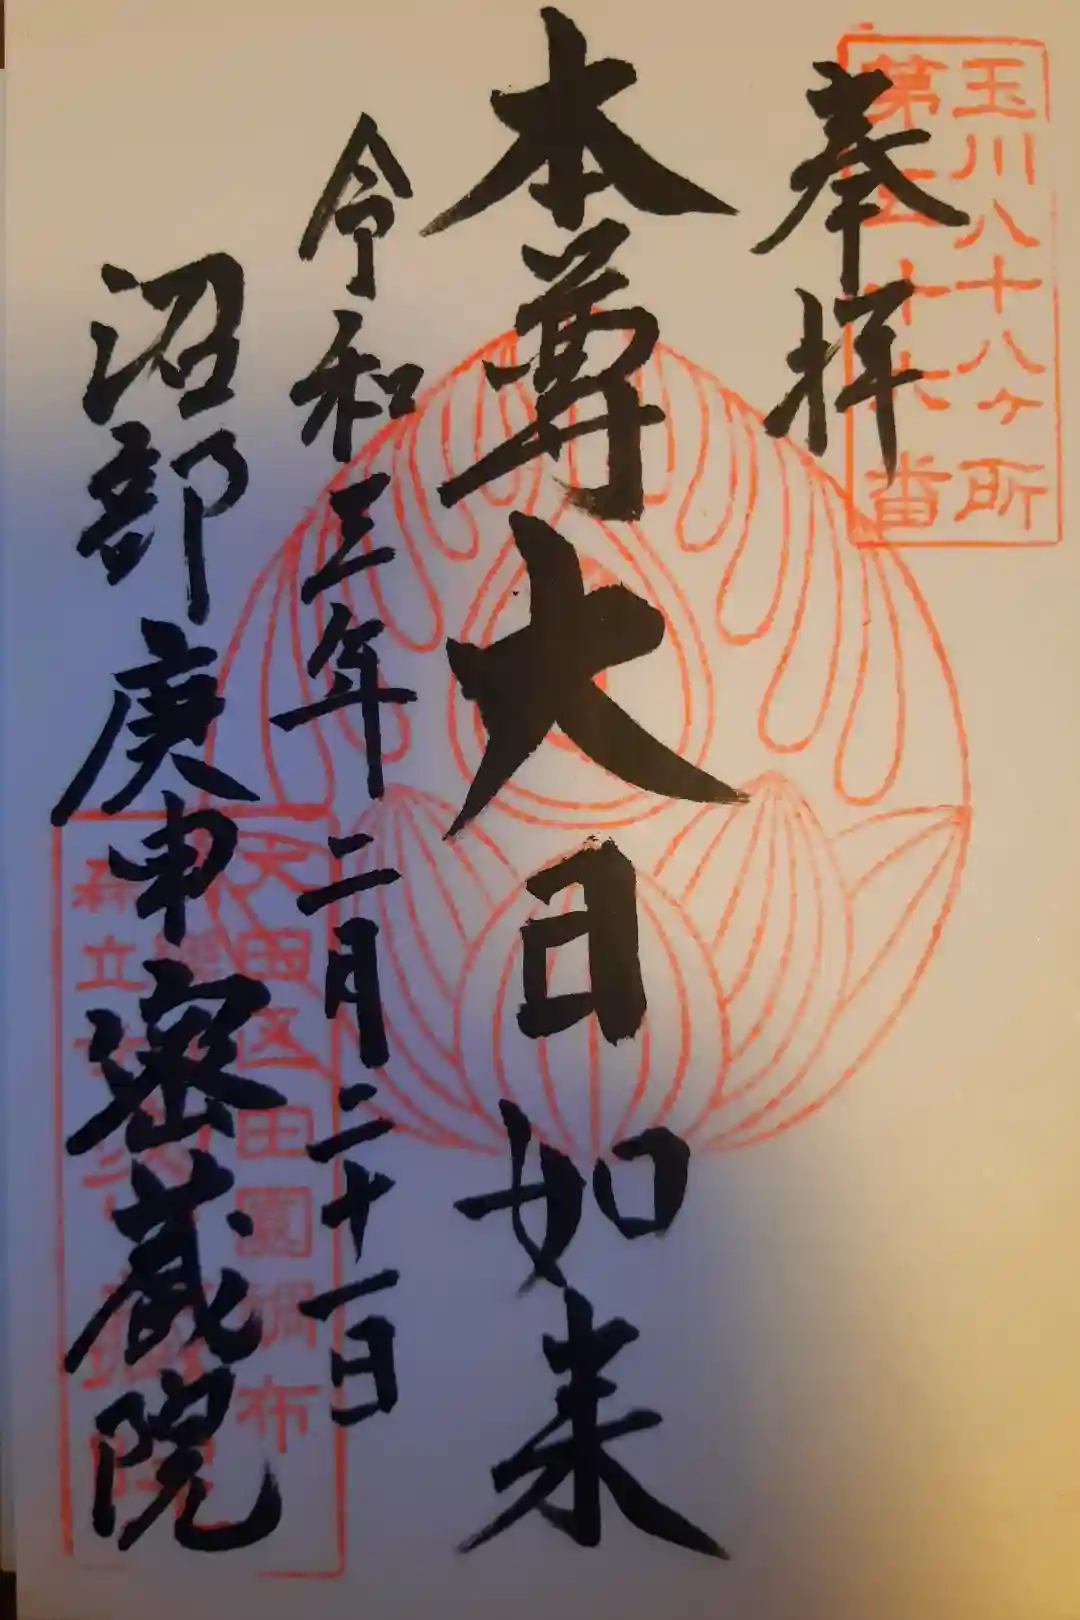 玉川八十八ヶ所
第五十六番
奉拝
本尊大日如来
令和三年二月二十一日
沼部庚申密蔵院
田園調布